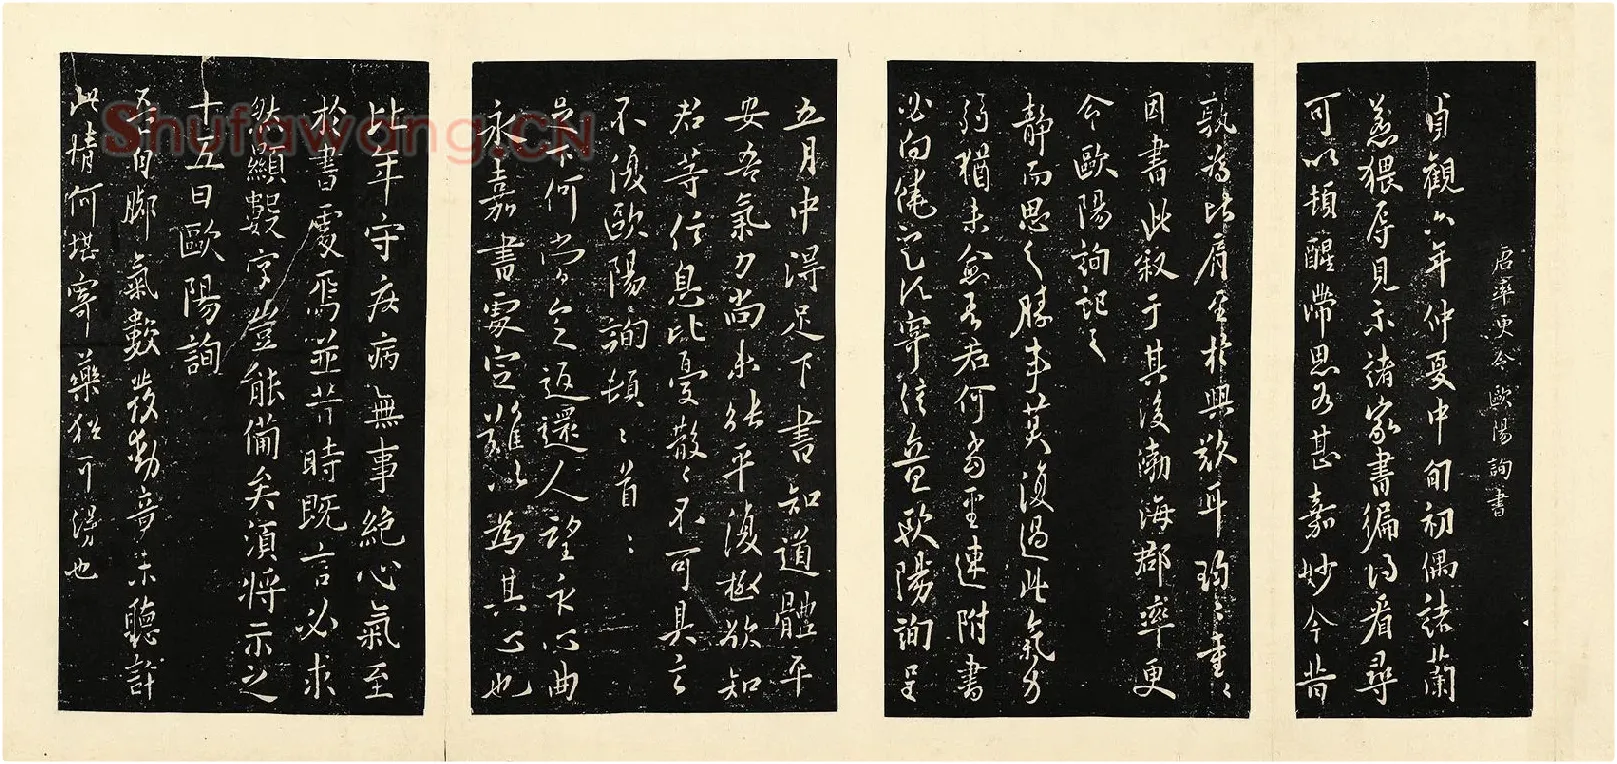 唐率更令歐陽詢書
貞觀六年仲夏中旬初偶諸蘭
若猥辱見示諸家書徧得看尋
可以頓醒滯思為甚嘉妙今昔
孰為比肩至於興歎耳珍珍重重
因書此叙于其後渤海郡率更
令歐陽詢記之
靜而思之勝事莫復過此氣力
弱猶未愈吾君何當至速附書
必向饒定以寄信並歐陽詢呈
五月中得足下書知道體平
安吾氣力尚未能平復極欲知
君等信息比憂散散不可具言
不復歐陽詢頓頓首首
足下何當之返還人望永心曲
永嘉書處定難以為其心也
比年守疾病無事絕心氣至
於書處焉並昔時既言必求
然顯數字豈能備矣須將示之
十五日歐陽詢
吾自腳氣數發動竟未聽許
此情何堪寄藥猶可得也
Shufawang.CN